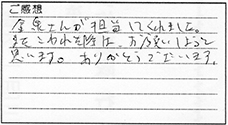 ご感想
今泉さんが担当してくれました。
またこわれた際は、お願いしようと
思います。ありがとうございます。